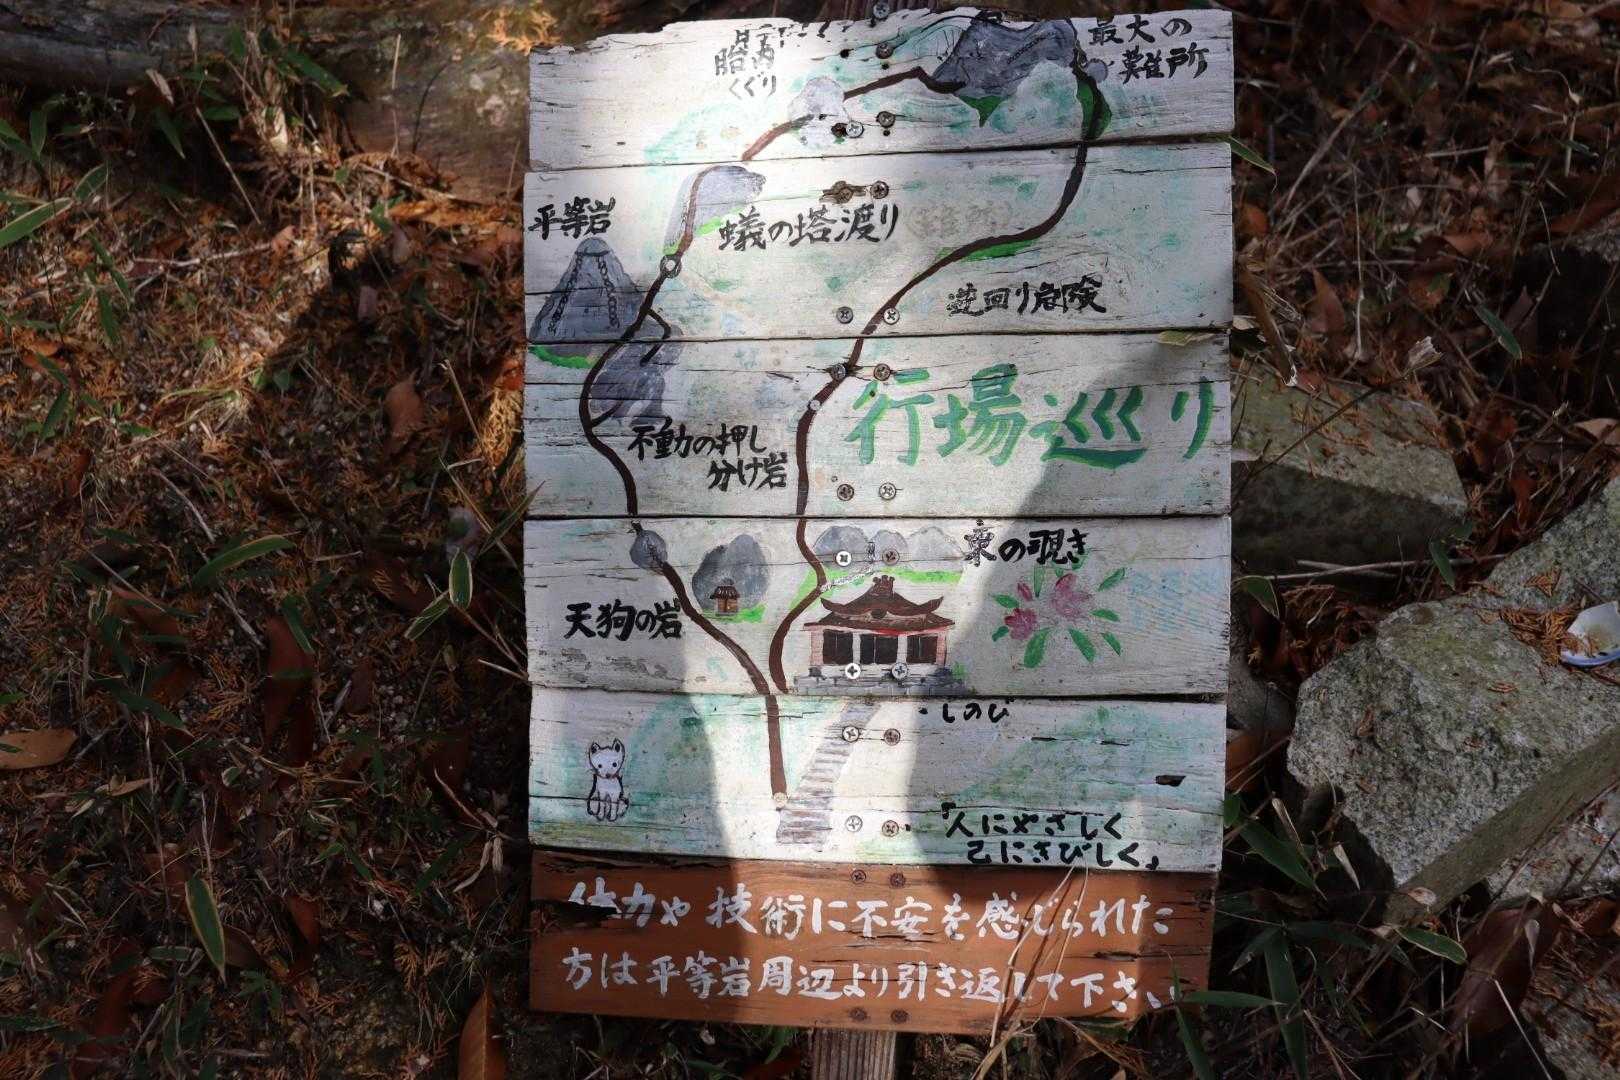 最大の
難所
胎内
くぐり
平等岩
蟻の塔渡り
逆回り危険
行場巡り
不動の押し
分け岩
東の覗き
天狗の岩
・しのび
「人にやさしく
己にきびしく」
体力や技術に不安を感じられた
方は平等岩周辺より引き返して下さい